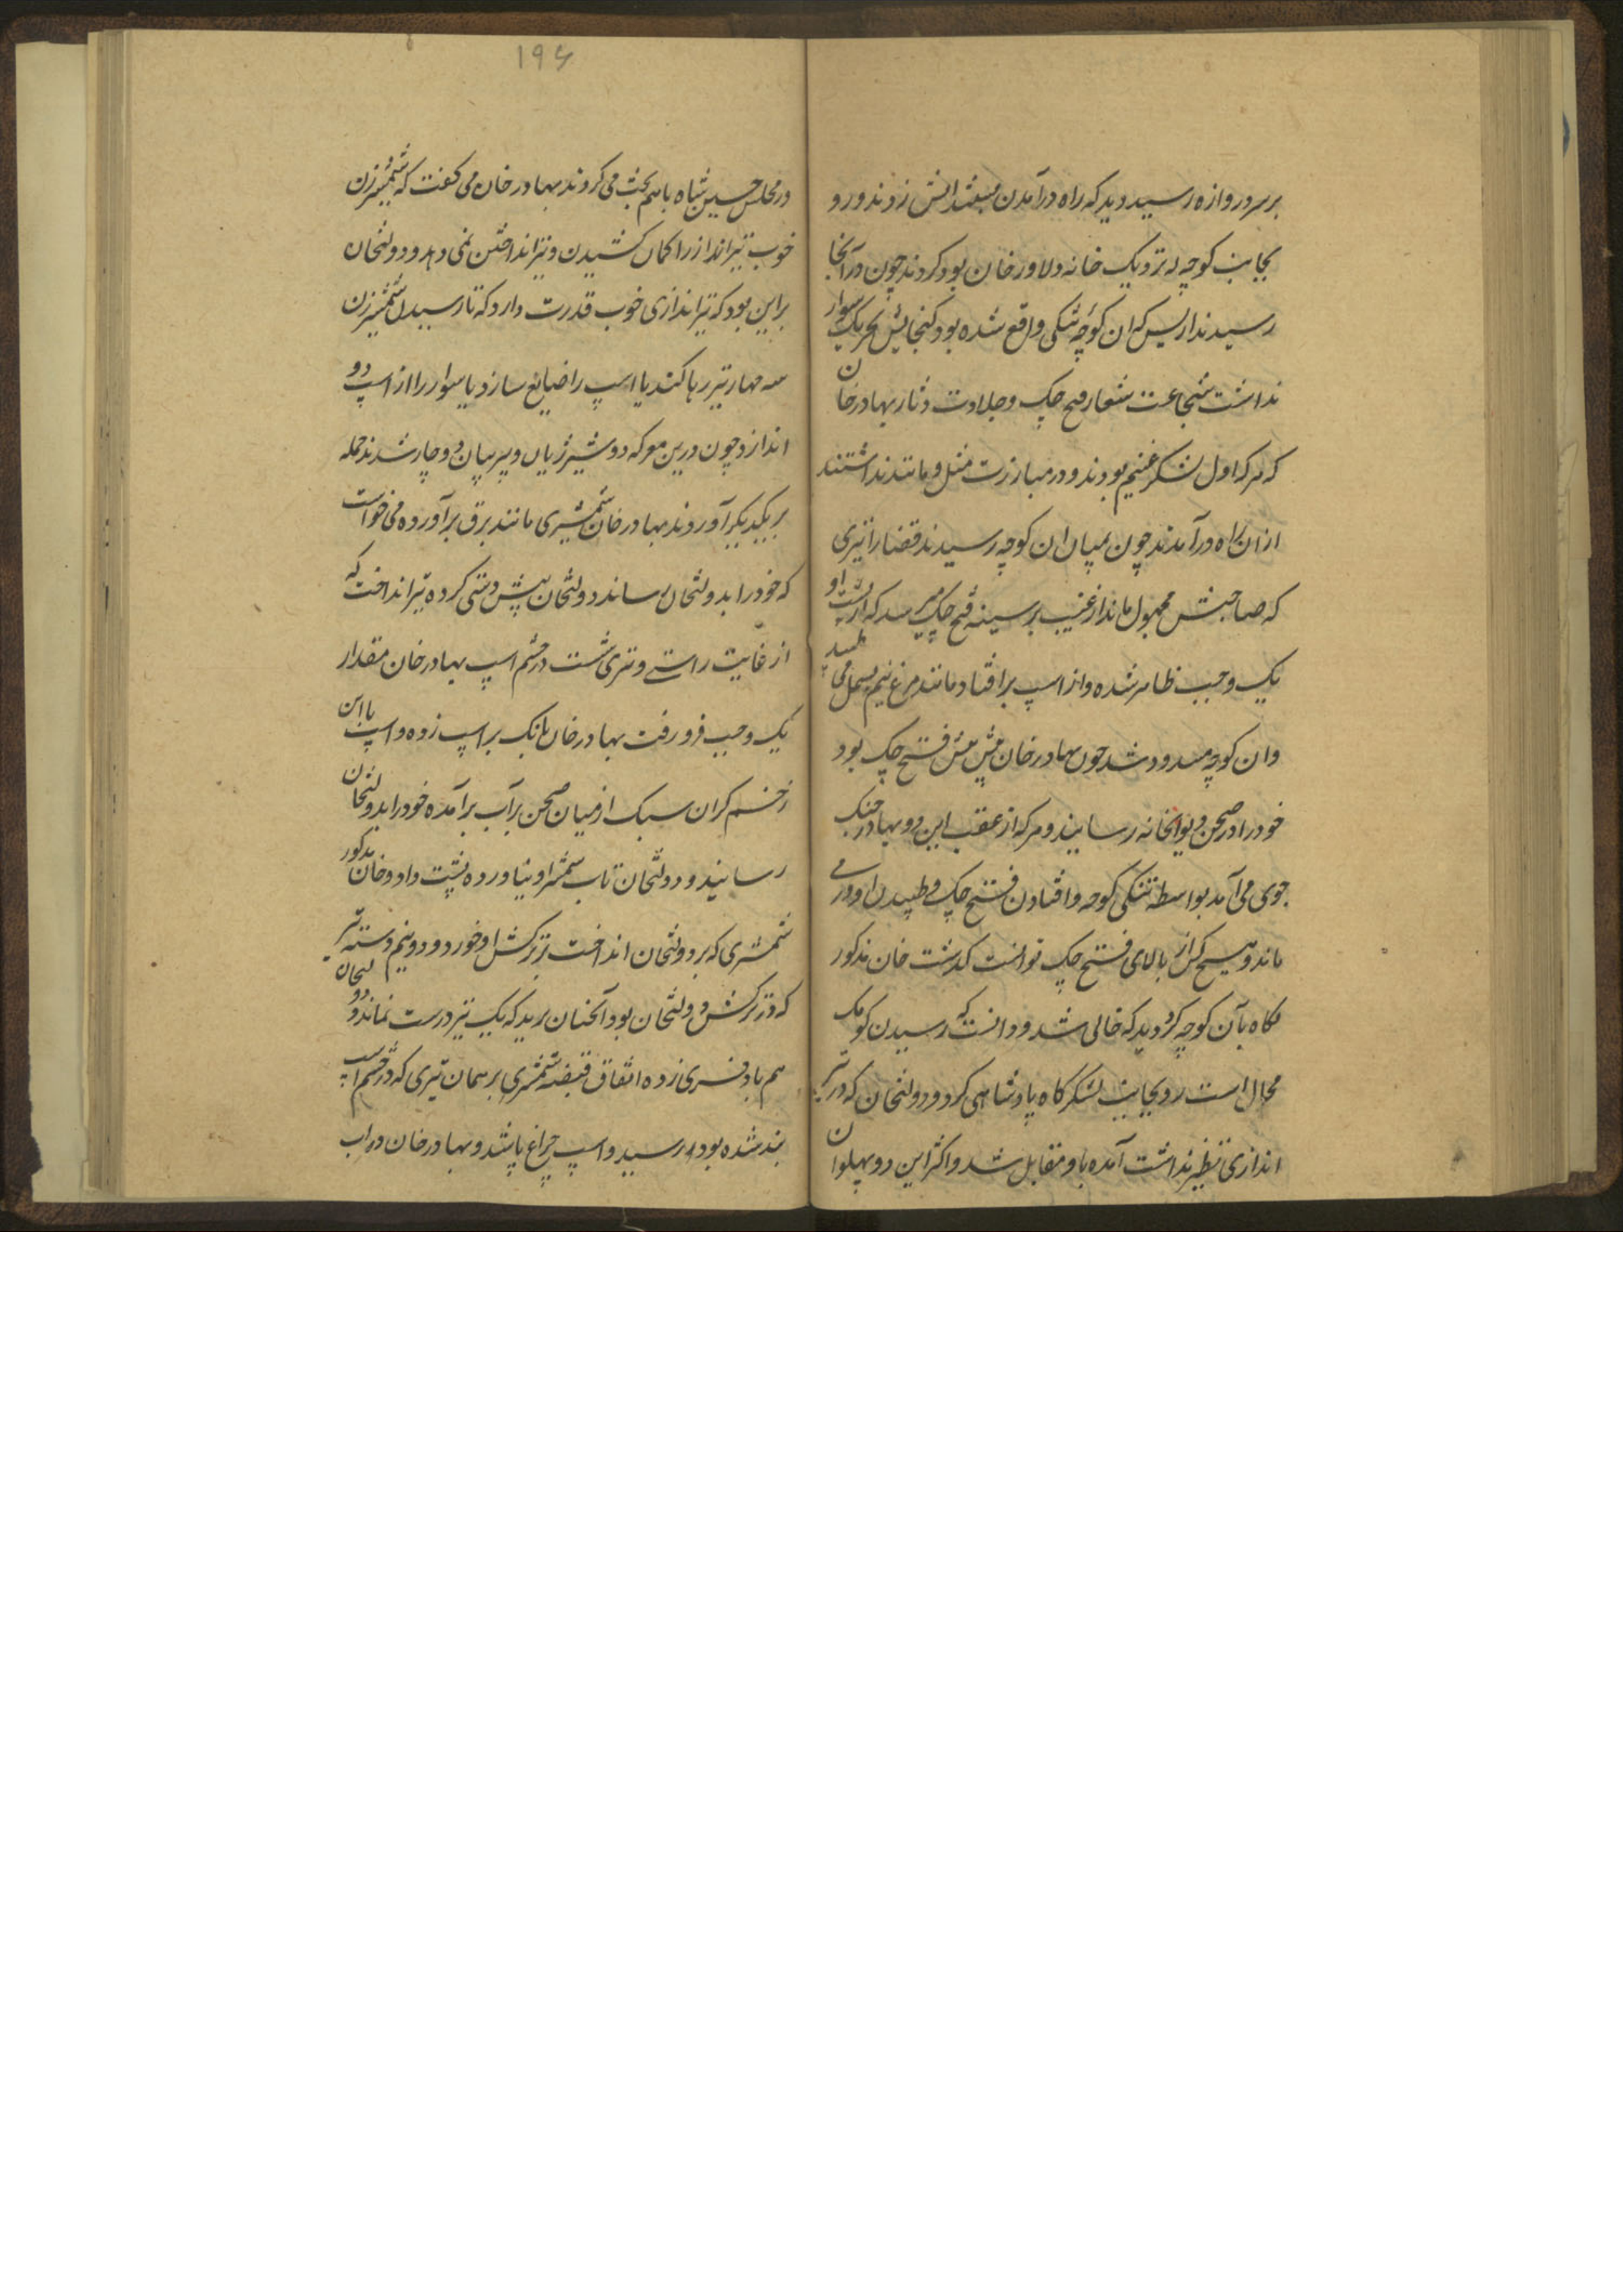 بر سر دروازه رسید دید که راه درآمدن زدند و رو
بجانب کوچه که نزدیک خانه دلاور خان بود کردند چون در آنجا
رسیدند از بس که ان کوچه تنکی واقع شده بود کنجایش بجز یک سوار
نداشت شجاعت شعار فتح چک و جلادت دثار بهادر خان
که هر که اول لشکر غنیم بودند و در مبارزت مثل و مانند نداشتند
ازان راه درآمدند چون بمیان ان کوچه رسیدند قضا را تیری
که صاحبش مجهول ماند از غیب بر سینه فتح چک میرسد که از پشت او
یک وجب ظاهر شده و از اسپ برافتاد مانند مرغ نیم بسمل می طپید
وان کوچه مسدود شد چون بهادر خان پیش پیش فتح چک بود
خود را در صحن دیوانخانه رسانید و هر که از عقب این دو بهادر جنک
جوی می آمد بواسطه تنکی کوچه و افتادن فتح چک و طپیدن او در می
ماند و هیچ کس از بالای فتح چک نتوانست کذشت خان مذکور
نکاه بآن کوچه کرد دید که خالی شد و دانست که رسیدن کومک
محال است رو بجانب لشکرکاه پادشاهی کرد و دولتخان که در تیر
اندازی نظیر نداشت آمده باو مقابل شد و اکثر این دو پهلوان
۱۹۶
در مجلس حسین شاه باهم بحث می کردند بهادر خان می کفت که شمشیر زن
خوب تیرانداز را کمان کشیدن و تیر انداختن نمی دهد و دولتخان
براین بود که تیراندازی خوب قدرت دارد که تا رسیدن شمشیر زن
سه چهار تیر رها کند یا اسپ را ضایع سازد یا سوار را از اسپ دور
اندازد چون درین معرکه دو شیر ژیان و ببر بیان دوچار شدند حمله
بر یکدیکر آوردند بهادر خان شمشیری مانند برق برآورده می خواست
که خود را بدولتخان رساند دولتخان پیش دستی کرده تیر انداخت که
از غایت راستی و تیزی شست در چشم اسپ بهادر خان مقدار
یک وجب فرو رفت بهادر خان بانک بر اسپ زده و اسپ با این
زخم کران سبک از میان صحن برآب برآمده خود را بدولتخان
رسانید و دولتخان تاب شمشیر او نیاورده پشت داد و خان مذکور
شمشیری که بر دولتخان انداخت بر ترکش او خورد و دو نیم دسته تیر
که در ترکش دولتخان بود آنچنان برید که یک تیر درست نماند دولتخان
هم زده اتفاق قبضه شمشیری بر همان تیری که در چشم اسپ
بند شده بود رسید و اسپ چراغ پا شد و بهادر خان در آب